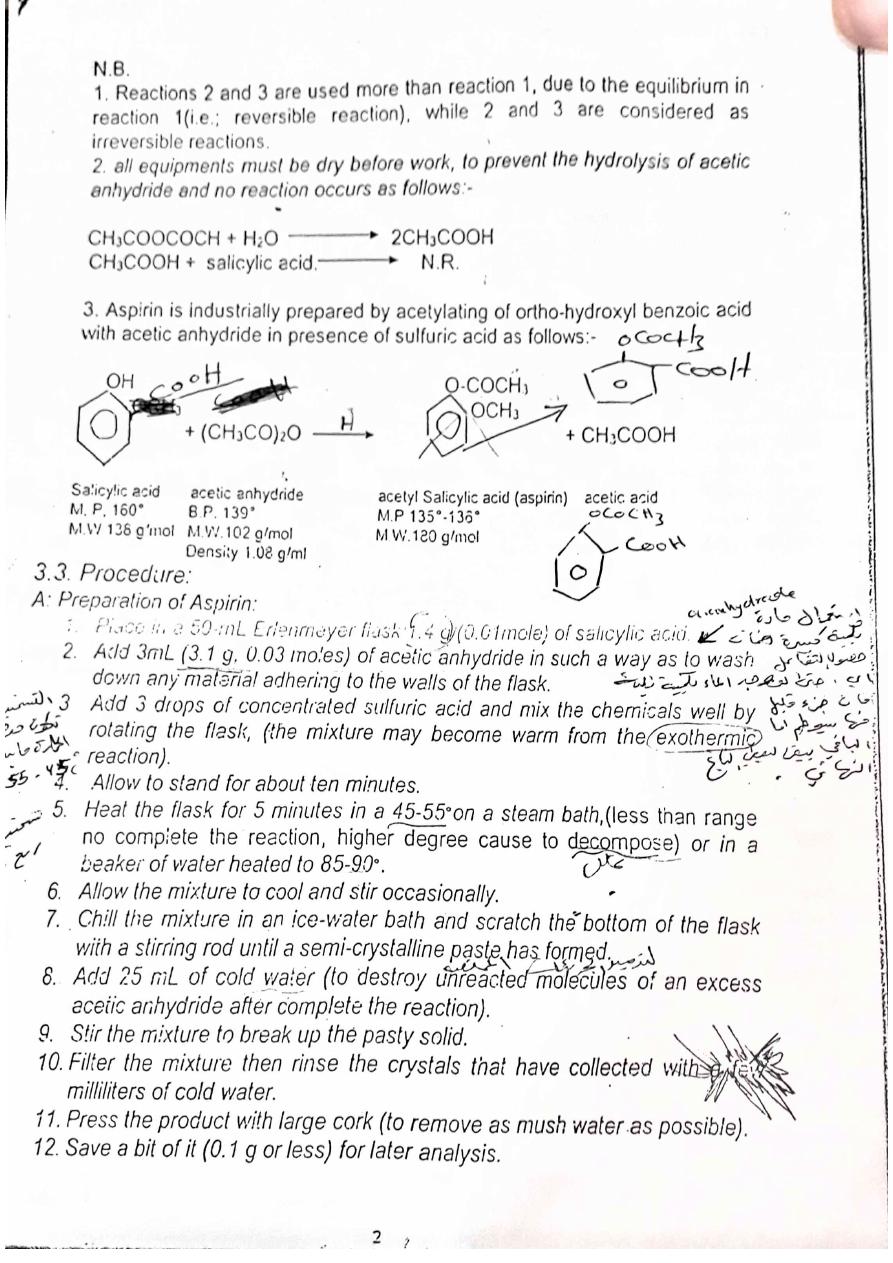 N.B.
1. Reactions 2 and 3 are used more than reaction 1, due to the equilibrium in
reaction 1(i.e.; reversible reaction), while 2 and 3 are considered as
irreversible reactions.
2. all equipments must be dry before work, to prevent the hydrolysis of acetic
anhydride and no reaction occurs as follows:-
CH₃COOCOCH + H₂O ⟶ 2CH₃COOH
CH₃COOH + salicylic acid. ⟶ N.R.
3. Aspirin is industrially prepared by acetylating of ortho-hydroxyl benzoic acid
with acetic anhydride in presence of sulfuric acid as follows:-
OCOCH3
COOH
OH
COOH
O-COCH₃
OCH₃
+ (CH₃CO)₂O
H
+ CH₃COOH
Salicylic acid acetic anhydride acetyl Salicylic acid (aspirin) acetic acid
M. P. 160° B.P. 139° M.P 135°-136°
M.W 138 g/mol M.W.102 g/mol M.W.180 g/mol
Density 1.08 g/ml
OCOCH3
COOH
3.3. Procedure:
A: Preparation of Aspirin:
1. Place in a 50-mL Erlenmeyer flask 1.4 g (0.01mole) of salicylic acid.
2. Add 3mL (3.1 g, 0.03 moles) of acetic anhydride in such a way as to wash
down any material adhering to the walls of the flask.
3 Add 3 drops of concentrated sulfuric acid and mix the chemicals well by
rotating the flask, (the mixture may become warm from the exothermic
reaction).
55-45c
4. Allow to stand for about ten minutes.
5. Heat the flask for 5 minutes in a 45-55° on a steam bath,(less than range
no complete the reaction, higher degree cause to decompose) or in a
beaker of water heated to 85-90°.
6. Allow the mixture to cool and stir occasionally.
7. Chill the mixture in an ice-water bath and scratch the bottom of the flask
with a stirring rod until a semi-crystalline paste has formed.
8. Add 25 mL of cold water (to destroy unreacted molecules of an excess
acetic anhydride after complete the reaction).
9. Stir the mixture to break up the pasty solid.
10. Filter the mixture then rinse the crystals that have collected with
milliliters of cold water.
11. Press the product with large cork (to remove as mush water as possible).
12. Save a bit of it (0.1 g or less) for later analysis.
2